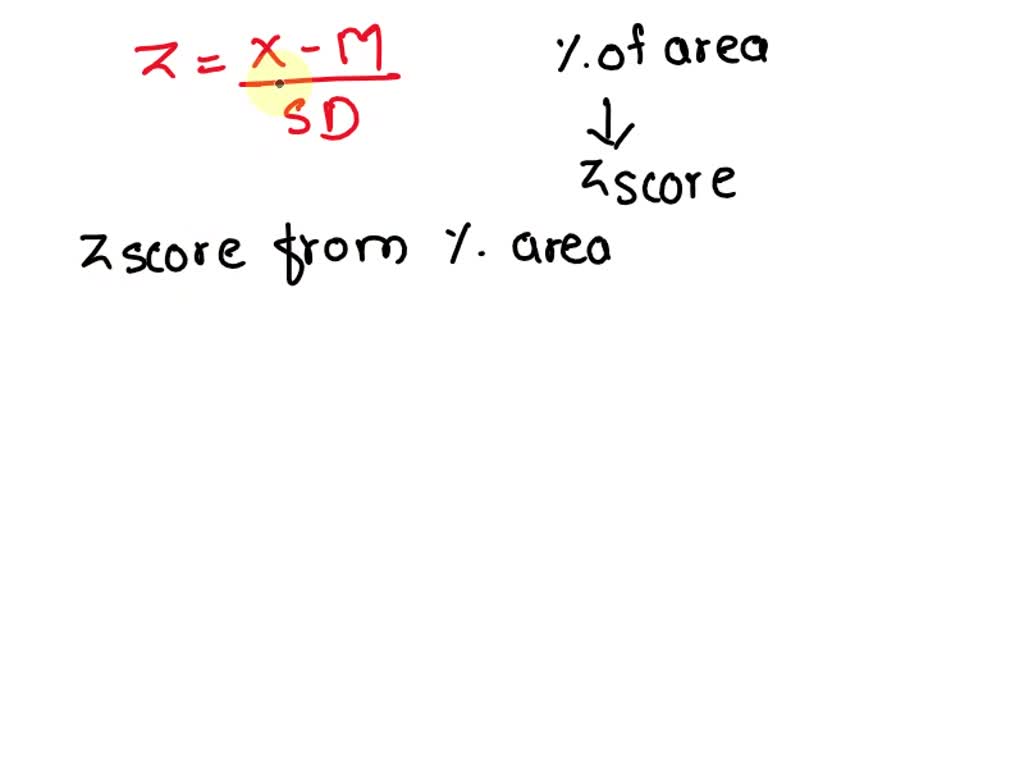 z = x - M
SD
%. of area
↓
z score
z score from %. area